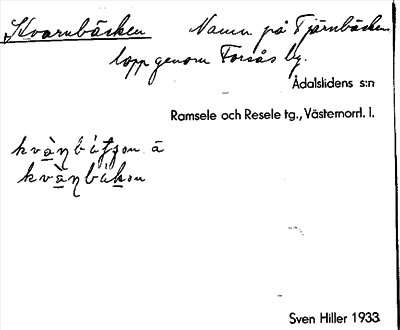 Kvarnbäcken Namn på Tjärnbäcken
lopp genom Forsås by.
Ådalslidens s:n
Ramsele och Resele tg., Västernorrl. l.
Sven Hiller 1933